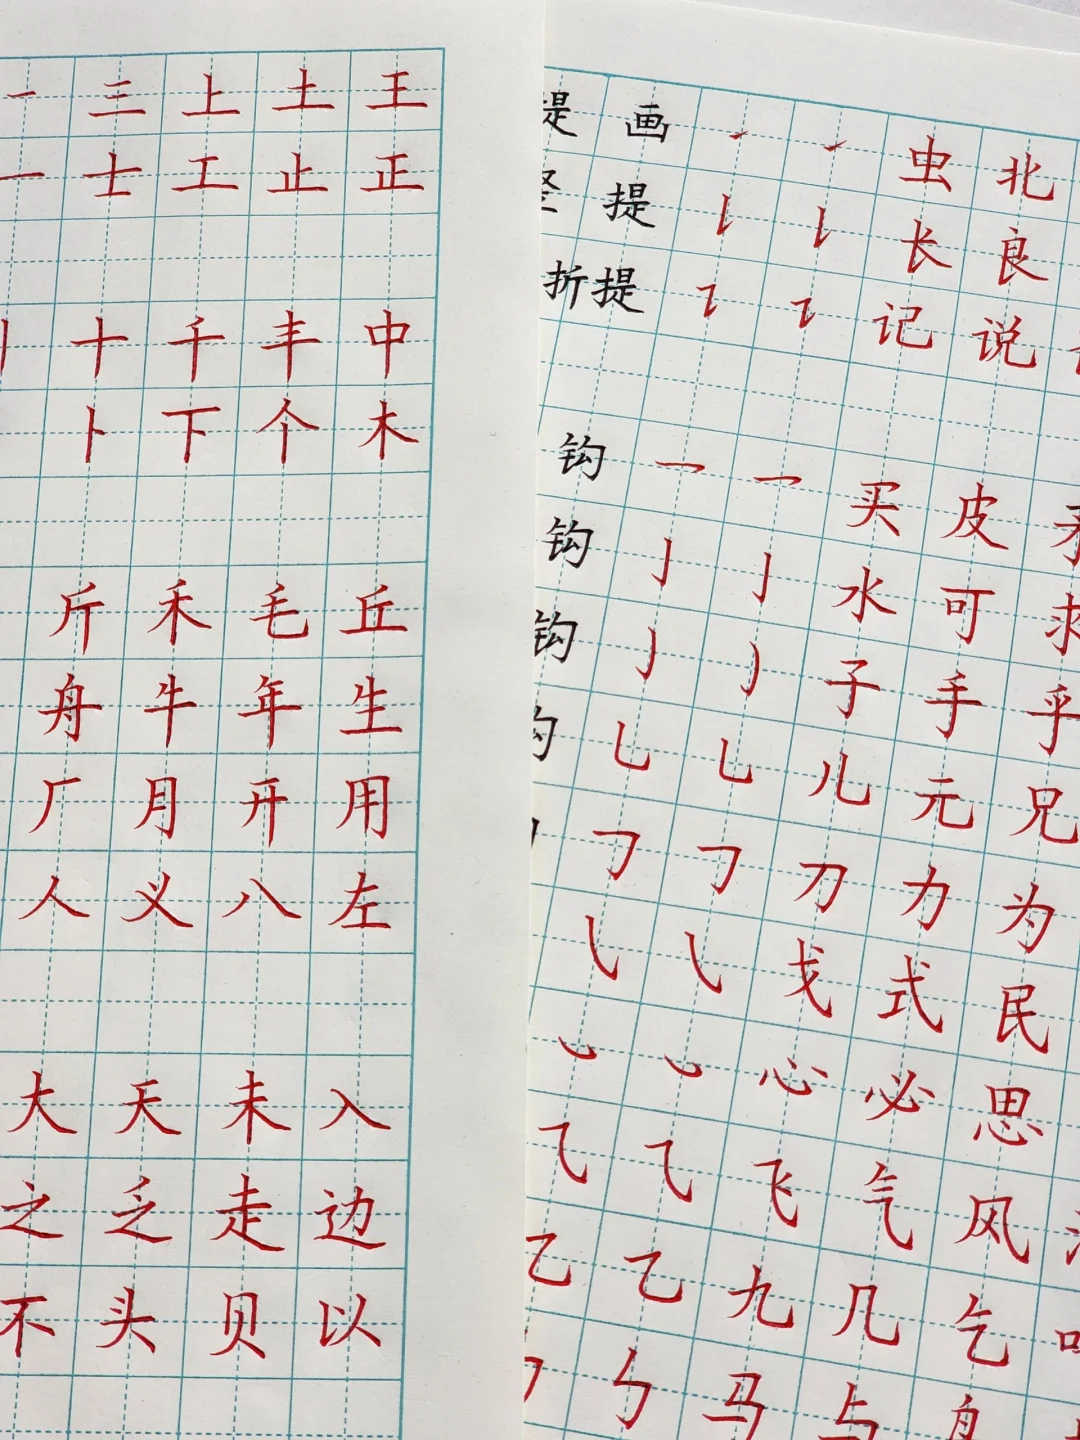 一 三 上 土 王
一 士 工 止 正
丨 十 千 丰 中
卜 下 个 木
斤 禾 毛 丘
舟 牛 年 生
厂 月 开 用
人 义 八 左
大 天 未 入
之 乏 走 边
不 头 贝 以
提 画 ㇀ ㇀ 虫 北
提 𠄌 𠄌 长 良
折提 ㇊ ㇊ 记 说
钩 乛 乛 买 皮
钩 亅 亅 水 可
钩 ㇁ ㇁ 子 手 乎
乚 乚 儿 元 兄
𠃌 𠃌 刀 力 为
㇂ ㇂ 戈 式 民
㇃ ㇃ 心 必 思
⺄ ⺄ 飞 气 风
乙 乙 九 几 乞
㇉ 马 与